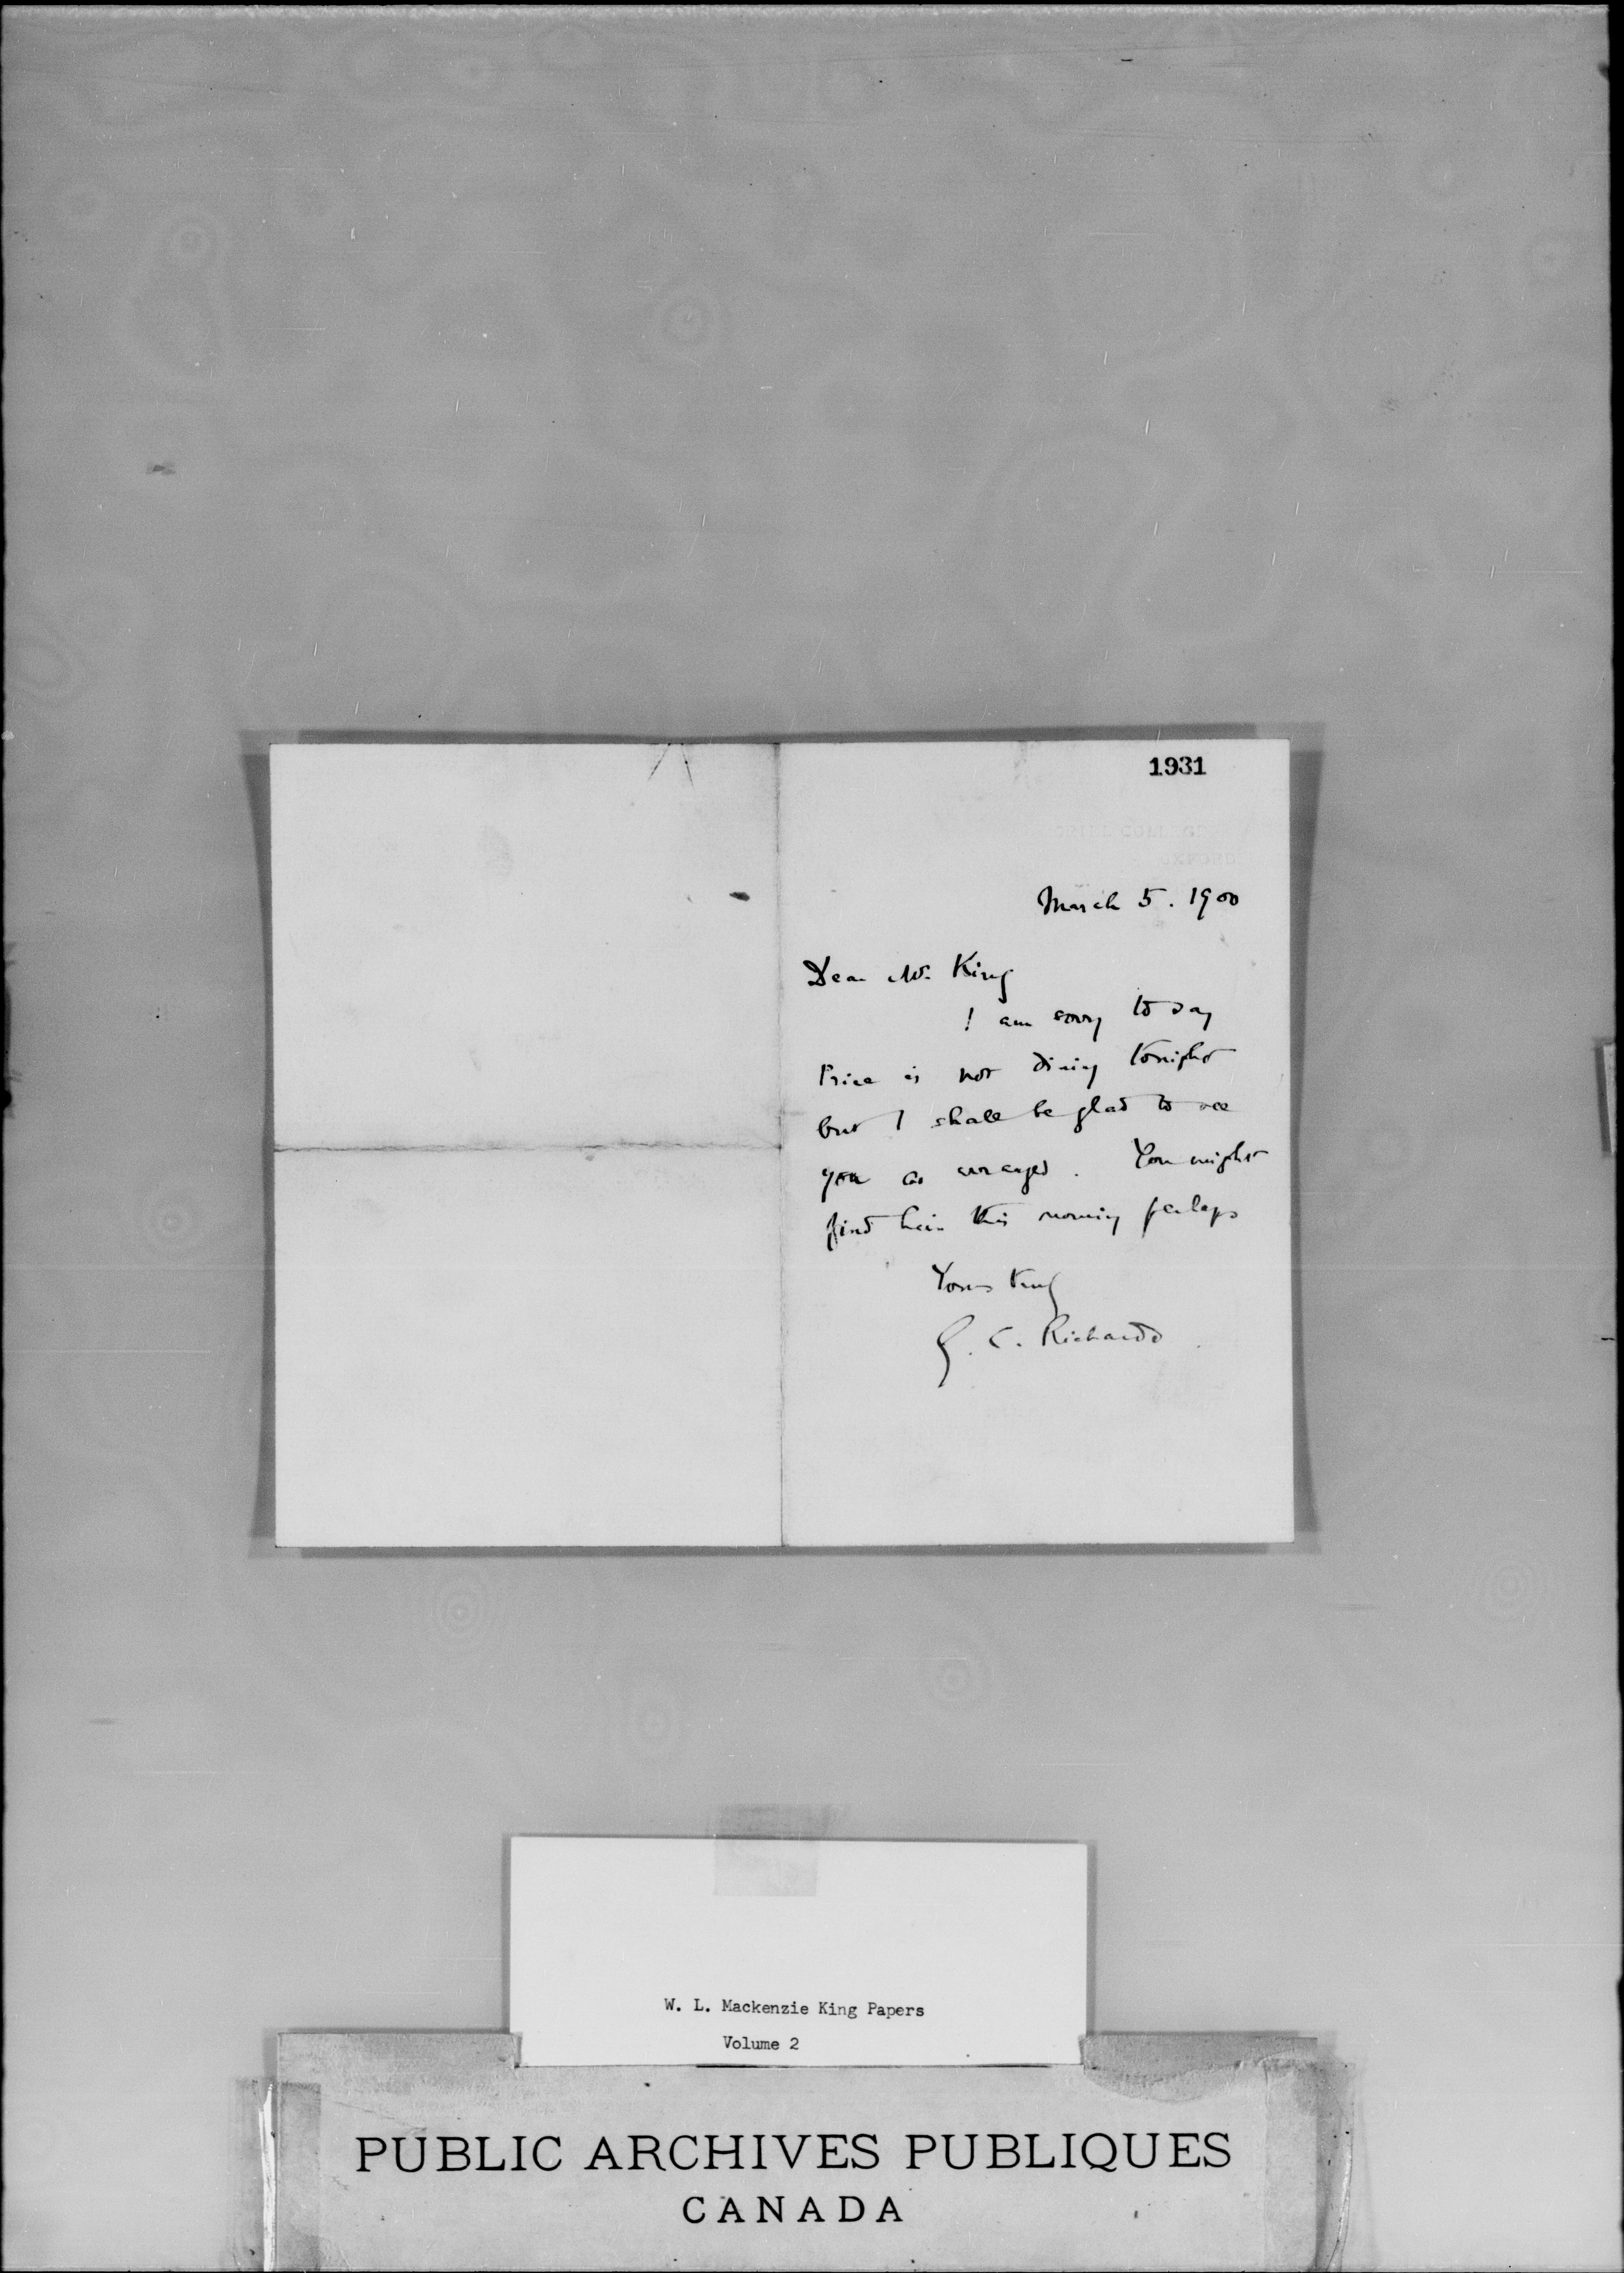 1931
ORIEL COLLEGE
OXFORD
March 5. 1900
Dear Mr. King
I am sorry to say
Price is not dining tonight
but I shall be glad to see
you as arranged. You might
find him this morning perhaps
Yours truly
G. C. Richards
W. L. Mackenzie King Papers
Volume 2
PUBLIC ARCHIVES PUBLIQUES
CANADA